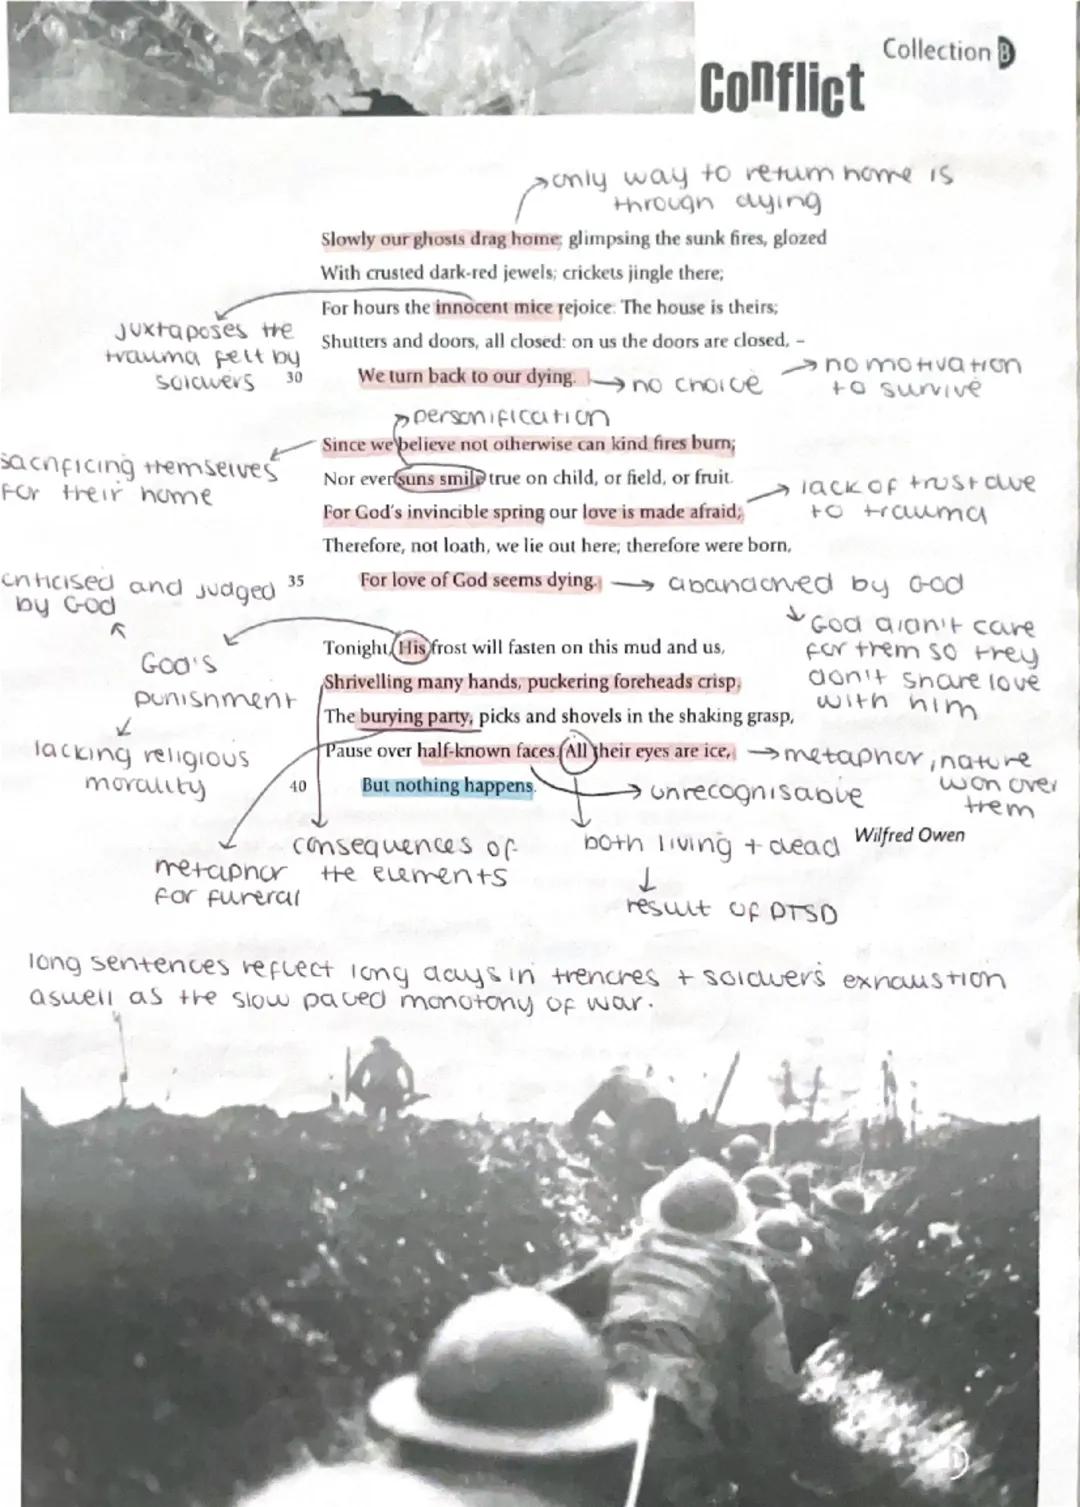 Collection B
Conflict
only way to return home is
through dying
Slowly our ghosts drag home; glimpsing the sunk fires, glozed
With crusted dark-red jewels; crickets jingle there;
For hours the innocent mice rejoice: The house is theirs;
juxtaposes the
trauma felt by
soldiers
Shutters and doors, all closed: on us the doors are closed, –
30
We turn back to our dying.
no choice
no motivation
to survive
personification
Since we believe not otherwise can kind fires burn;
sacrificing themselves
for their home
Nor ever suns smile true on child, or field, or fruit.
For God's invincible spring our love is made afraid;
lack of trust due
to trauma
Therefore, not loath, we lie out here; therefore were born,
criticised and judged
by God
35
For love of God seems dying.
abandoned by God
God didn't care
for them so they
don't share love
with him
Tonight, His frost will fasten on this mud and us,
God's
punishment
Shrivelling many hands, puckering foreheads crisp.
The burying party, picks and shovels in the shaking grasp,
lacking religious
morality
Pause over half-known faces. All their eyes are ice,
metaphor, nature
won over
them
40
But nothing happens.
unrecognisable
Wilfred Owen
metaphor
for funeral
consequences of
the elements
both living + dead
result of PTSD
long sentences reflect long days in trenches + soldiers exhaustion
aswell as the slow paced monotony of war.